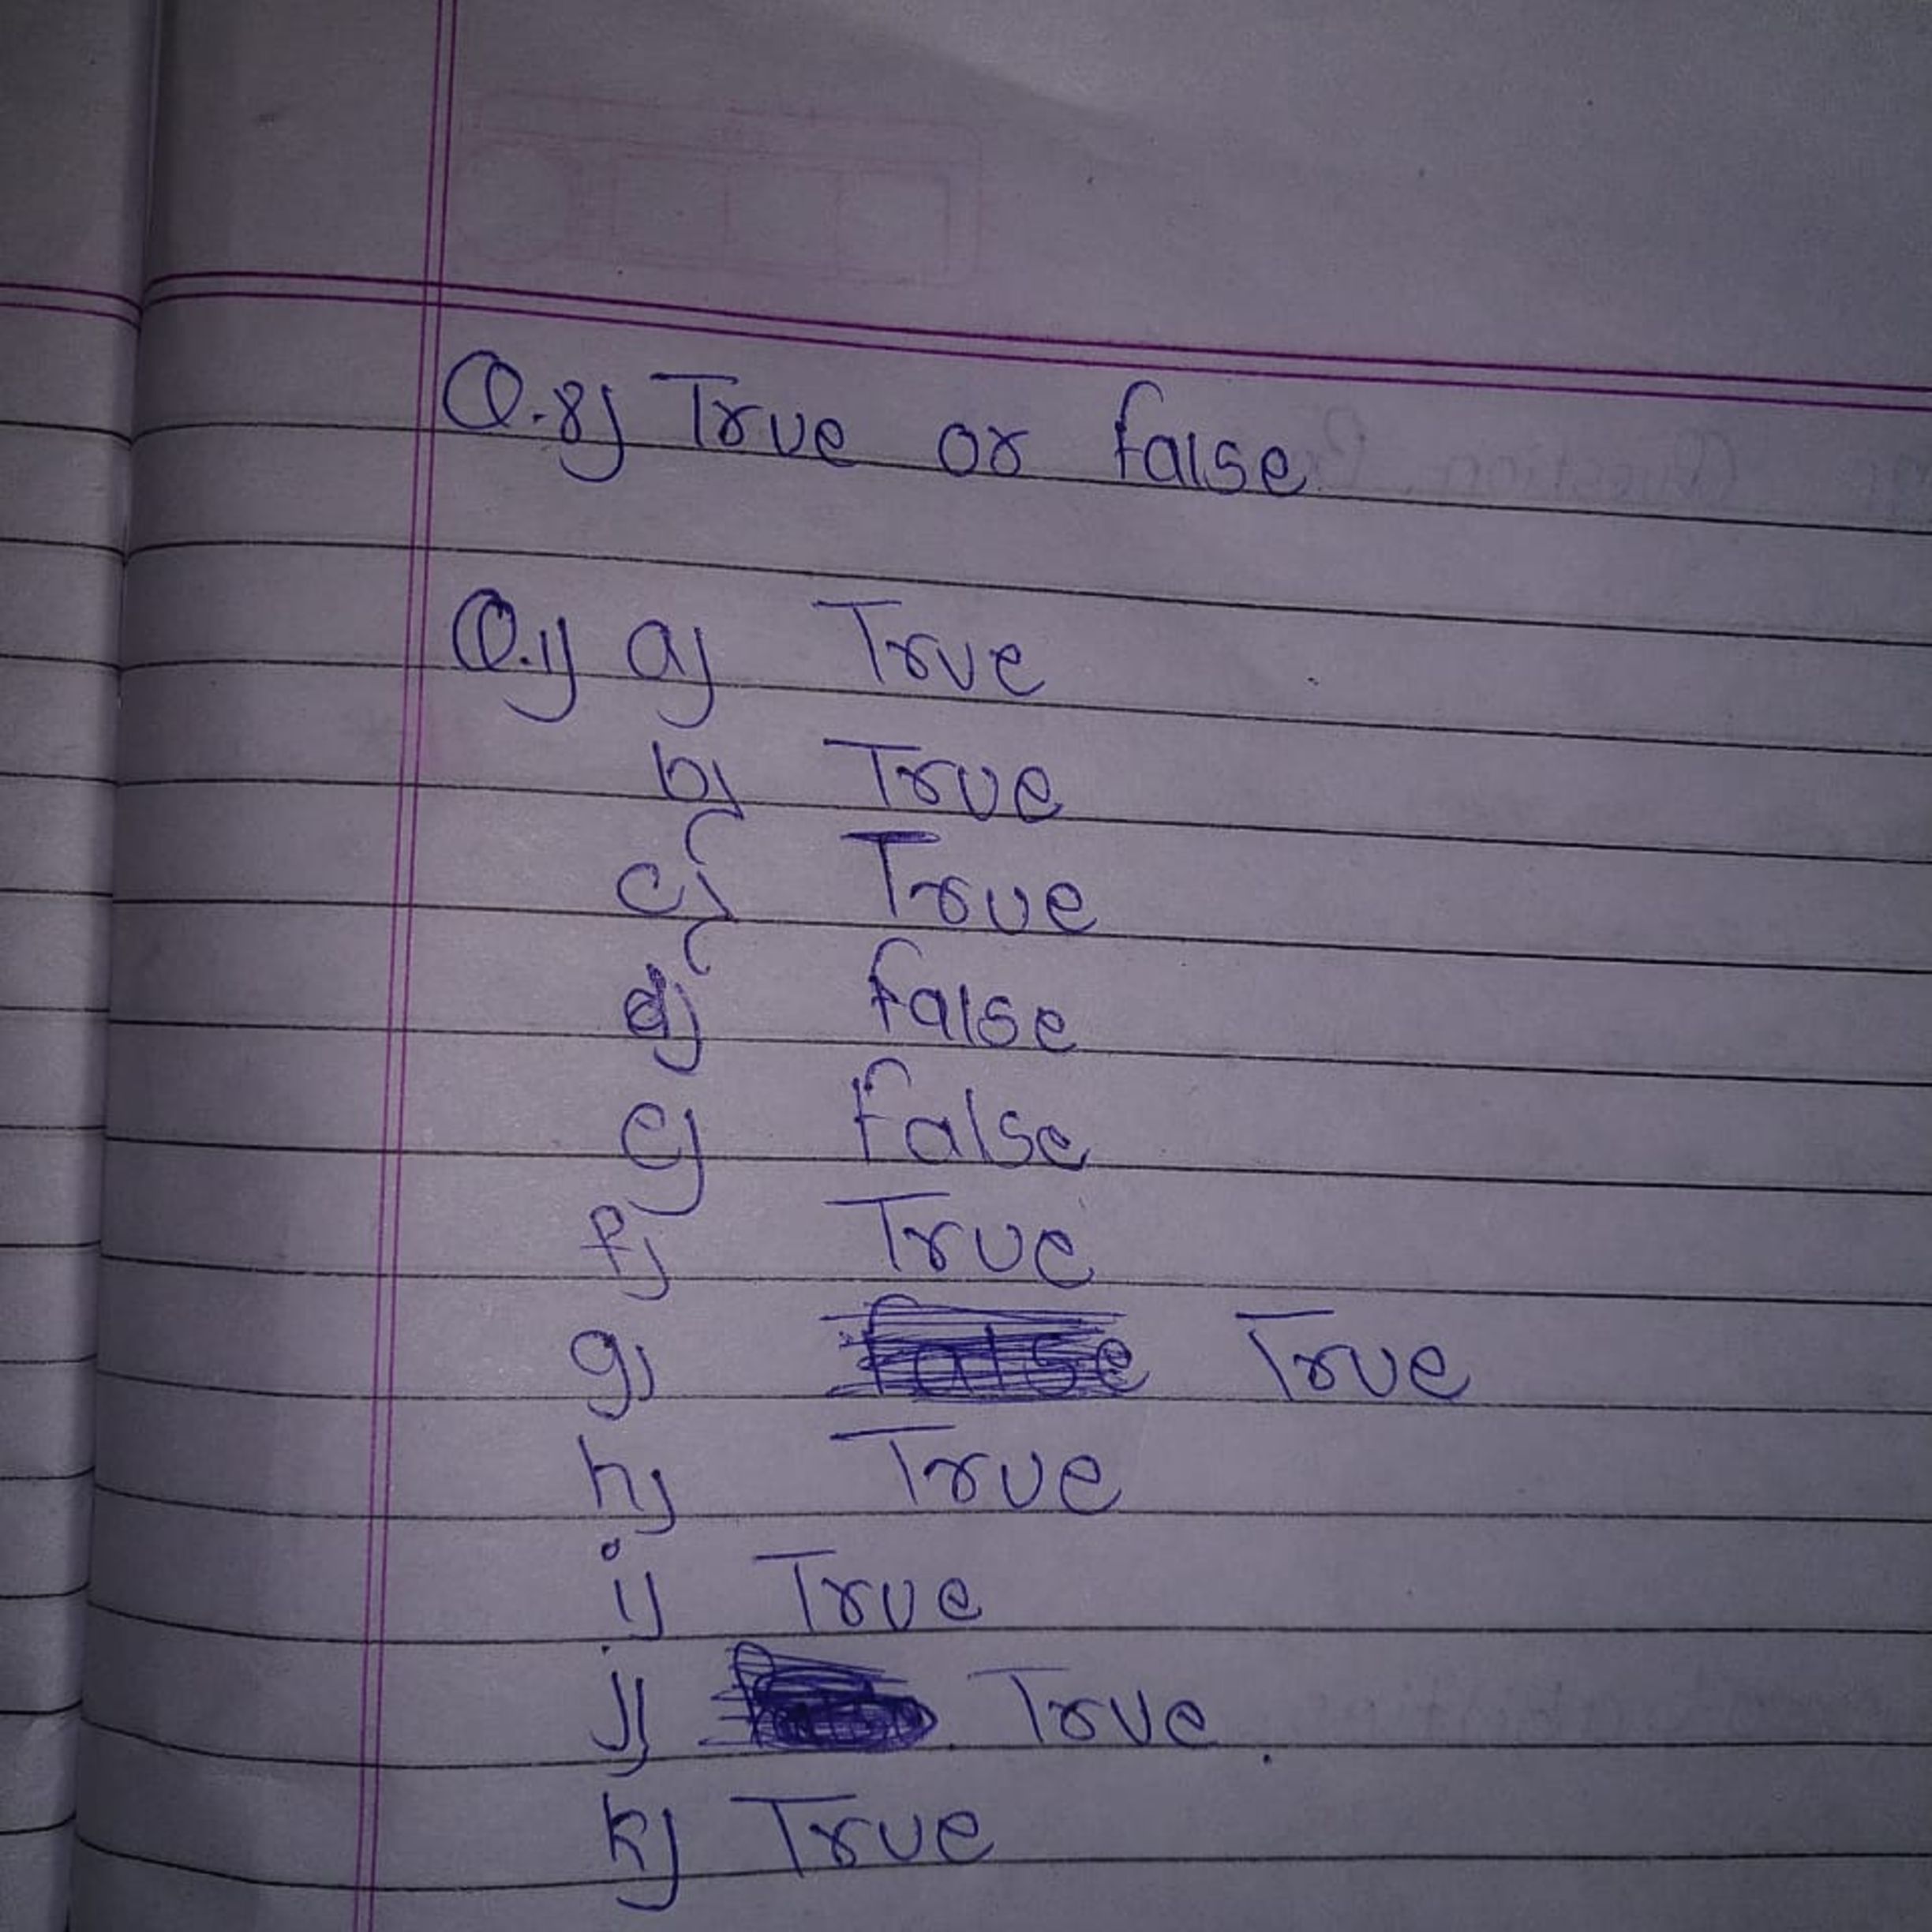 Q.8) True or false
Q.1) a) True
b) True
c) True
d) false
e) false
f) True
g) false True
h) True
i) True
j) True.
k) True